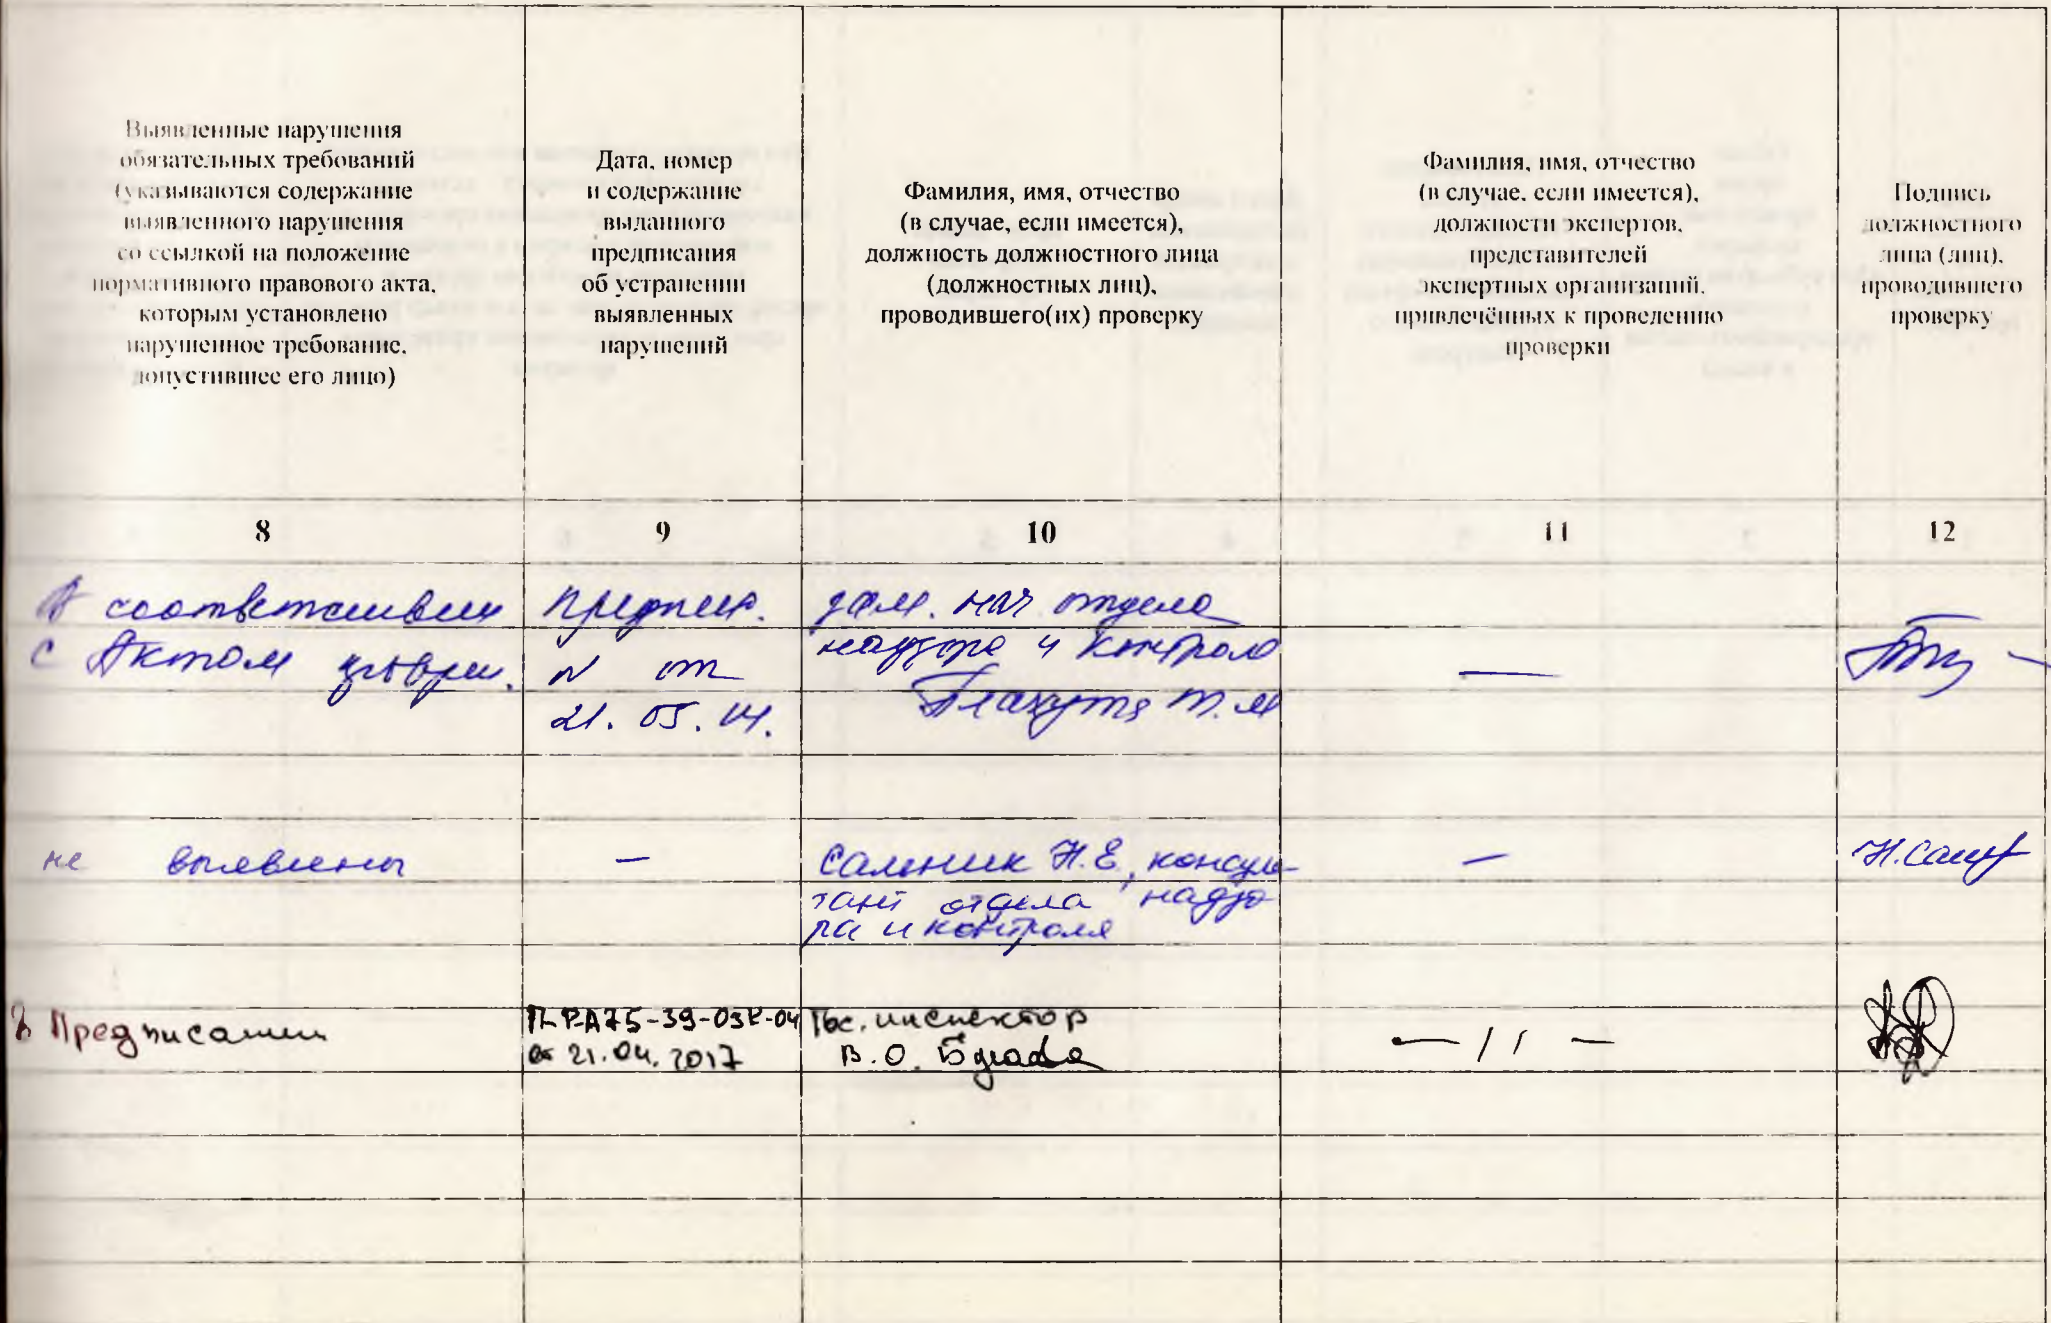 Выявленные нарушения
обязательных требований
(указываются содержание
выявленного нарушения
со ссылкой на положение
нормативного правового акта,
которым установлено
нарушенное требование,
допустившее его лицо)
Дата, номер
и содержание
выданного
предписания
об устранении
выявленных
нарушений
Фамилия, имя, отчество
(в случае, если имеется),
должность должностного лица
(должностных лиц),
проводившего(их) проверку
Фамилия, имя, отчество
(в случае, если имеется),
должности экспертов,
представителей
экспертных организаций,
привлечённых к проведению
проверки
Подпись
должностного
лица (лиц),
проводившего
проверку
8 9 10 11 12
В соответствии
с Актом
предпис.
№ от
21.05.14.
зам. нач отдела
надзора и контроля
Т.М
—
не выявлены
—
Сальник Н.Е, консуль-
тант отдела надзо
ра и контроля
—
В Предписании
от 21.04.2017
Гос. инспектор
В.О.
— 11 —